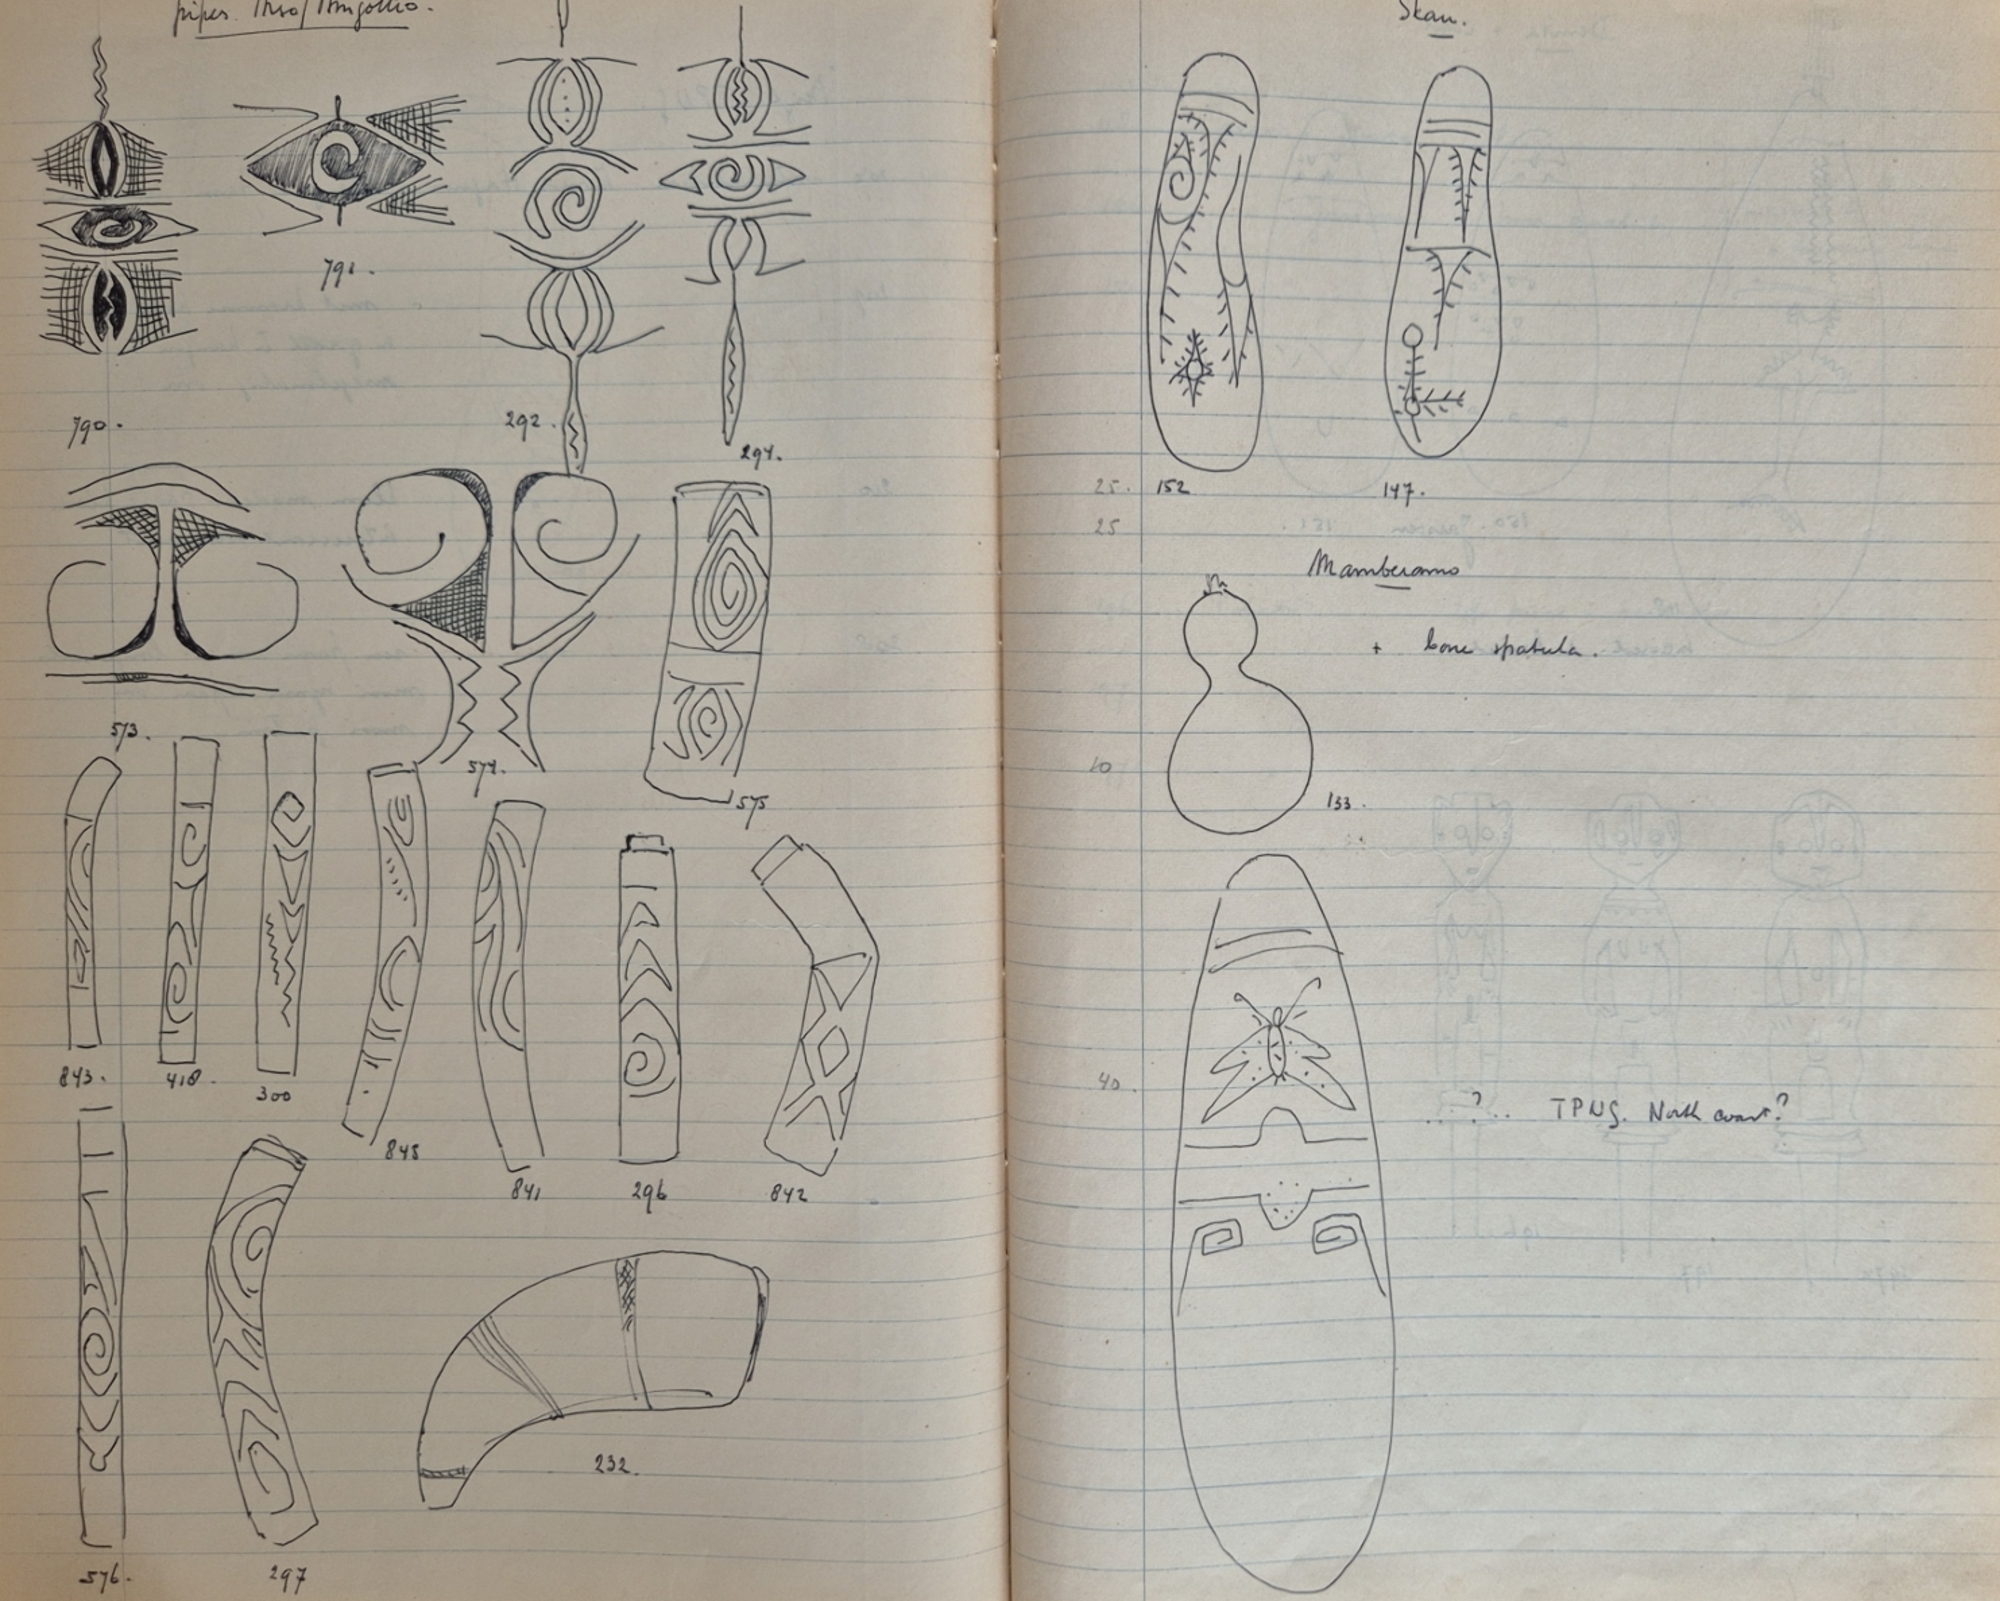 pipes.
791.
790.
292.
294.
573.
574.
575
843.
418.
300
845
841
296
842
576.
297
232.
Skau.
25. 152 147.
25
Mamberamo
+ bone spatula.
10 133.
40.
..?.. TPNG. North coast?